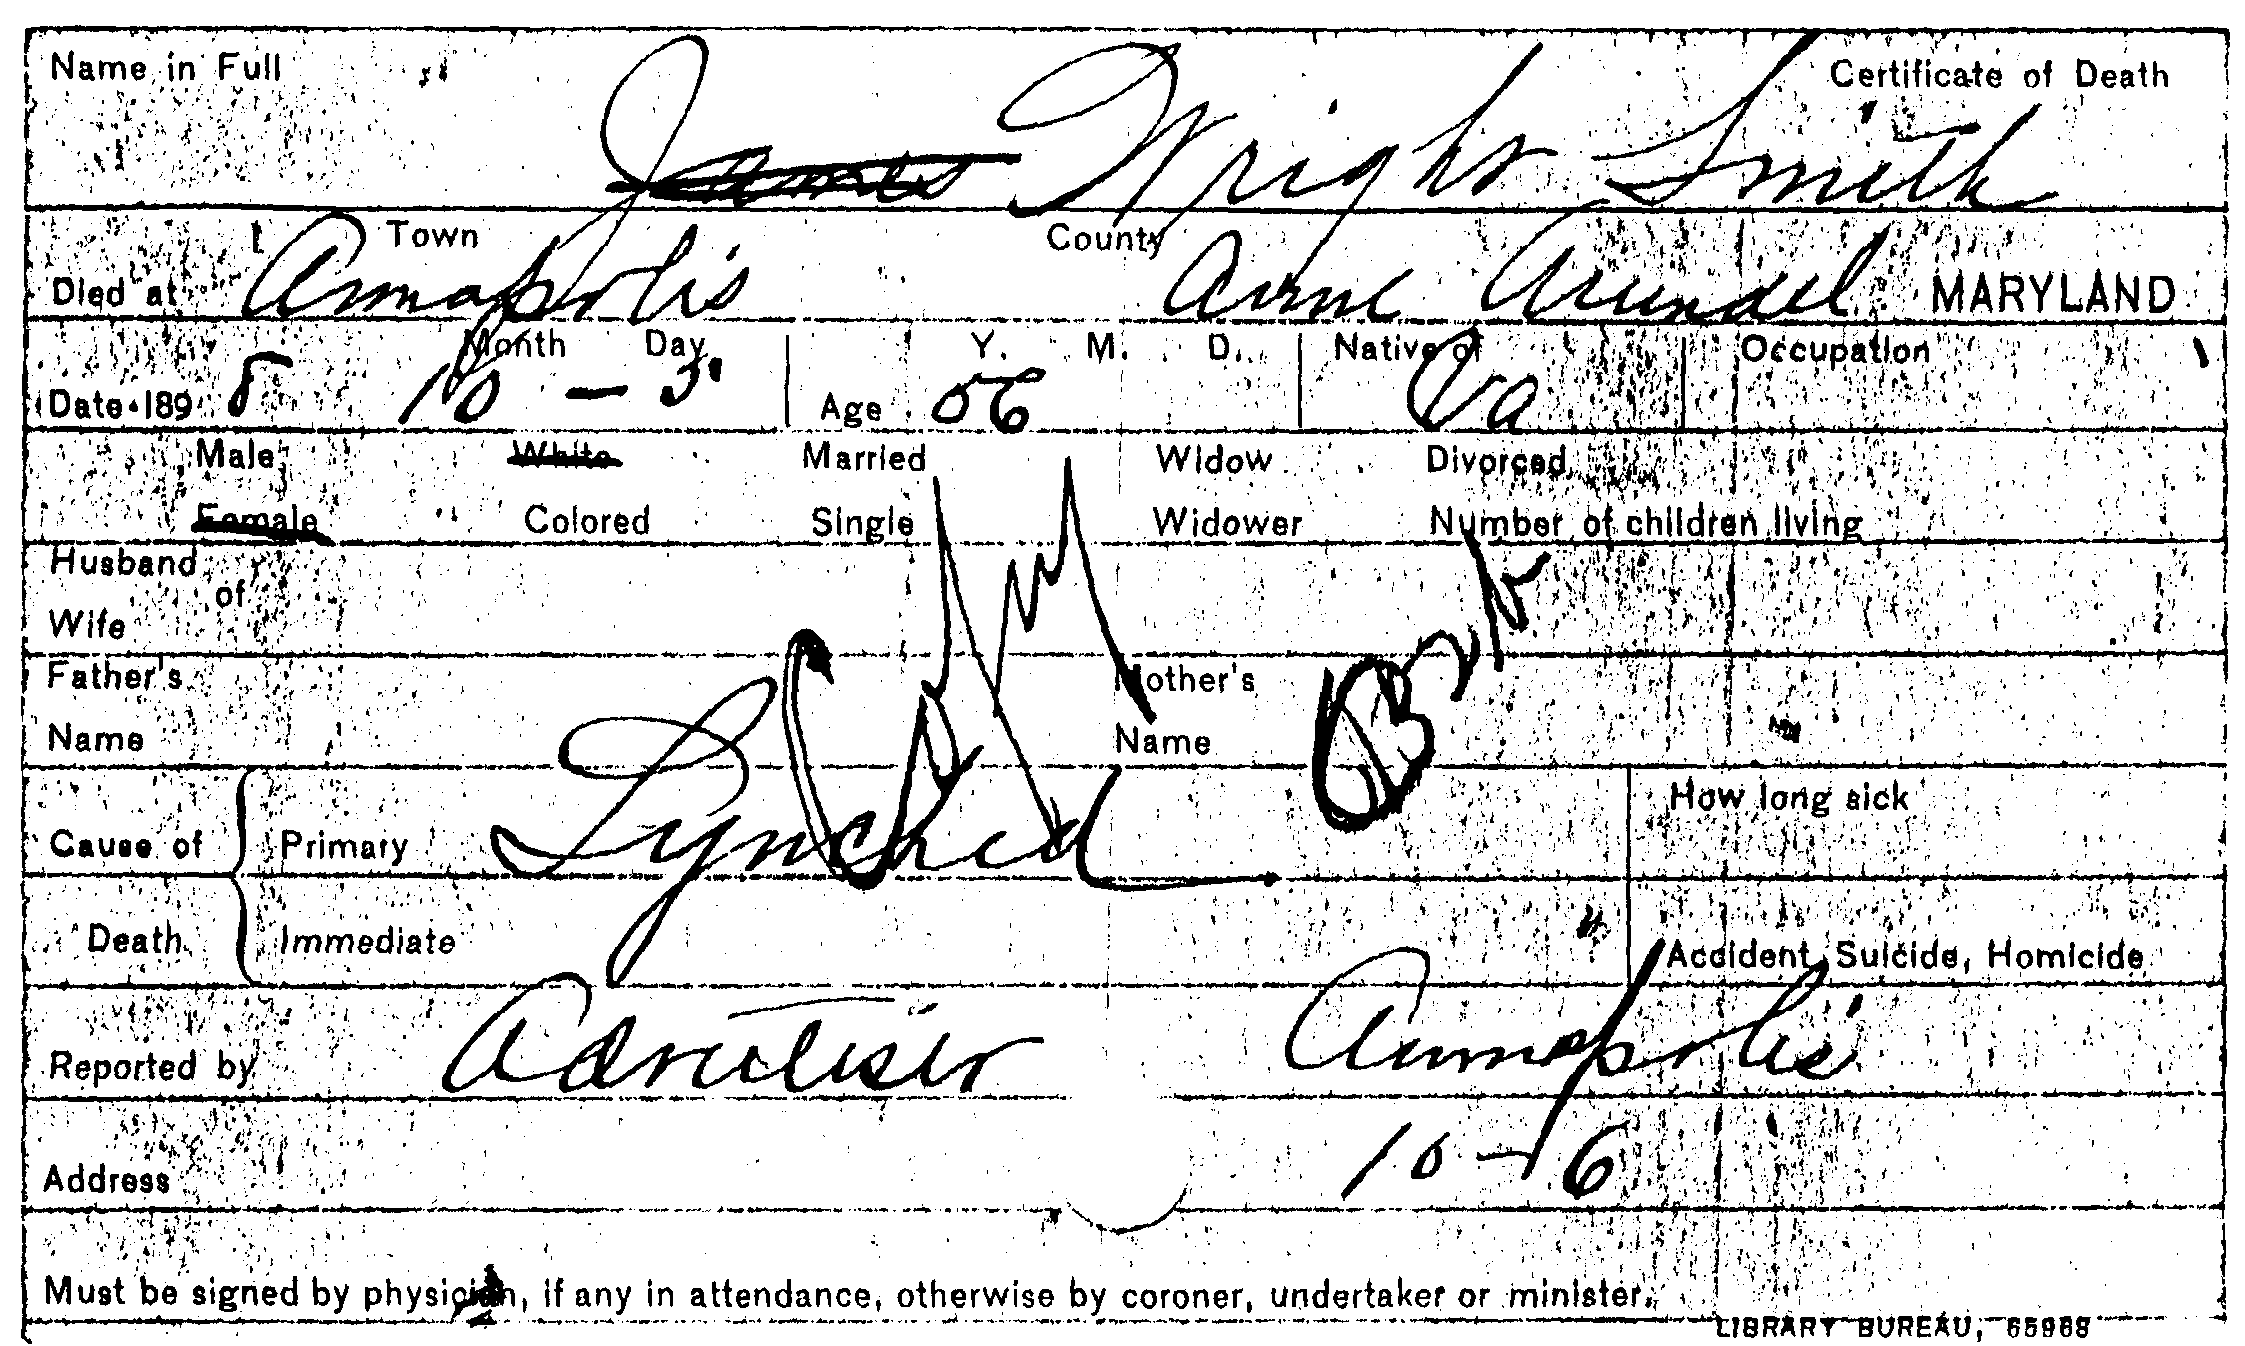 Name in Full James Wright Smith Certificate of Death
Town County
Died at Annapolis Anne Arundel MARYLAND
Month Day Y. M. D. Native of Occupation
Date 189 8 10 - 5 Age 56 Va
Male White Married Widow Divorced
Female Colored Single Widower Number of children living
Husband
of
Wife
Father's Mother's
Name Name
How long sick
Cause of Primary Lynched
Death Immediate
Accident, Suicide, Homicide
Reported by Advertiser Annapolis
Address 10-6
Must be signed by physician, if any in attendance, otherwise by coroner, undertaker or minister.
LIBRARY BUREAU, 65968